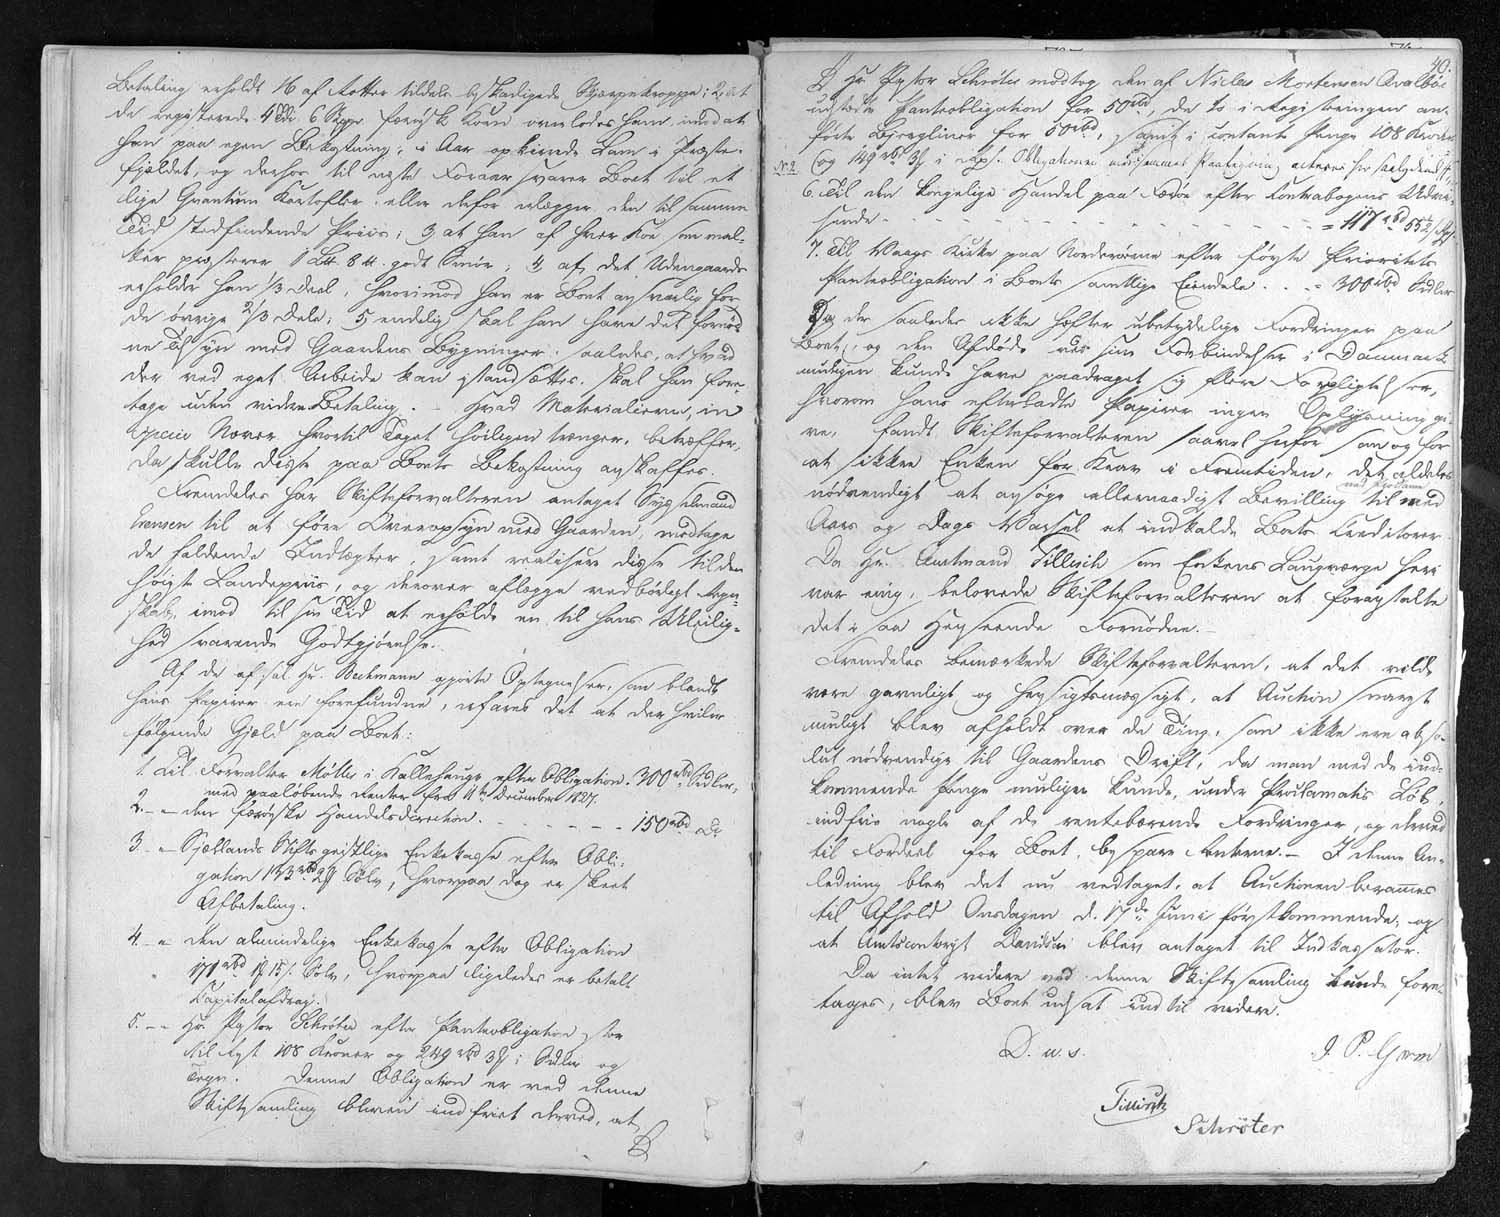 Betaling erholdt 16 af Rotter tildels beskadigede Skjærpekroppe; 2, at
de registerede 4 Tdr 6 Skpr færøisk Korn overlodes ham, imod at
han paa egen Bekostning i Aar opkiende Dam i Præste-
fjeldet, og derhos til næste Foraar svarer Boet til et
lige Qvantum Kartofler eller derfor erlægger den til samme
Tid stedfindende Priis; 3, at han af hver Koe som mal-
ker præsterer 1 L℔ 8 ℔ godt Smør; 4, af det Udengaards
erholder han 1/3 Deel, hvorimod han er Boet ansvarlig for
de øvrige 2/3 Dele; 5, endelig skal han have det fornød-
ne Tilsyn med Gaardens Bygninger, saaledes, at hvad
der ved eget Arbeide kan istandsættes, skal han fore-
tage uden videre Betaling. – Hvad Materialierne, in
specie Næver, hvortil Taget høiligen trænger, betræffer,
da skulle disse paa Boets Bekostning anskaffes.
Fremdeles har Skifteforvalteren antaget Sysselmand
Evensen til at føre Overopsyn med Gaarden, modtage
de faldende Indtægter, samt realisere disse til den
høiest Landspriis, og derover aflægge vedbørligt Regn-
skab, imod til sin Tid at erholde en til hans Uleilig-
hed svarende Godtgjørelse.
Af de af sal. Hr. Beckmann gjorte Optegnelser, som blandt
hans Papirer ere forefundne, erfares det at der hviler
følgende Gjeld paa Boet:
1. Til Forvalter Møller i Kallehauge efter Obligation 300 rbd Sedler,
med paaløbende Renter fra 11te December 1827.
2. – " den færøiske Handelsdirection. - - - - - - 150 rbd Do
3. – " Sjællands Stifts geistlige Enkekasse efter Obli-
gation 133 rbd 2 ß Sølv, hvorpaa dog er skeet
Afbetaling.
4. – " den almindelige Enkekasse efter Obligation
171 rbd 1 ß 15 s. Sølv, hvorpaa ligeledes er betalt
Capitalafdrag.
5. – " Hr. Pastor Schrøter efter Panteobligation stor
til Rest 108 Kroner og 249 rbd 3 ß i Sedler og
Tegn. Denne Obligation er ved denne
Skiftesamling bleven indfriet derved, at
40.
Hr. Pastor Schrøter modtog den af Niclas Mortensen Qvalbøe
udstedte Panteobligation for 50 rbd, de i Registeringen an-
førte Bjergliner for 50 rbd, samt i contante Penge 108 Kroner
No 2. og 149 rbd 3 ß i Rpf. Obligationen med sammes Paategning acteres her saalydende
6. Til den kongelige Handel paa Færøe efter Contrabogens Udvi-
sende - - - - - - - - - = 117 rbd 55 1/2 s.
7. Til Waags Kirke paa Norderøerne efter første Prioritets
Panteobligation i Boets samtlige Eiendele - - = 300 rbd Sedler
Da der saaledes ikke hefter ubetydelige Fordringer paa
Boet, og den Afdøde ved sine Forbindelser i Danmark
muligen kunde have paadraget sig flere Forpligtelser,
hvorom hans efterladte Papirer ingen Oplysning gi-
ve, fandt Skifteforvalteren saavel herfor som og for
at sikkre Enken for Krav i Fremtiden, det aldeles
nødvendigt at ansøge allernaadigst Bevilling til med
Aars og Dags Varsel at indkalde Boets Creditorer
Da Hr. Amtmand Tillisch som Enkens Laugværge heri
var enig, belovede Skifteforvalteren at foranstalte
det i saa Henseende Fornødne. –
Fremdeles bemærkede Skifteforvalteren, at det vilde
være gavnligt og hensigtsmæssigt, at Auction snarest
muligt blev afholdt over de Ting, som ikke ere abso-
lut nødvendige til Gaardens Drift, da man med de ind-
kommende Penge muligen kunde, under Proclamatis Løb,
indfrie nogle af de rentebærende Fordringer, og derved
til Fordeel for Boet, bespare Renterne. – I denne An-
ledning blev det nu vedtaget, at Auctionen berammes
til Afhold Onsdagen d. 17de Juni førstkommende, og
at Amtscontorist Davidsen blev antaget til Indkassator.
Da intet videre ved denne Skiftesamling kunde fore-
tages, blev Boet udsat indtil videre.
D. u. s.
J. P. Grøm
Tillisch
Schrøter